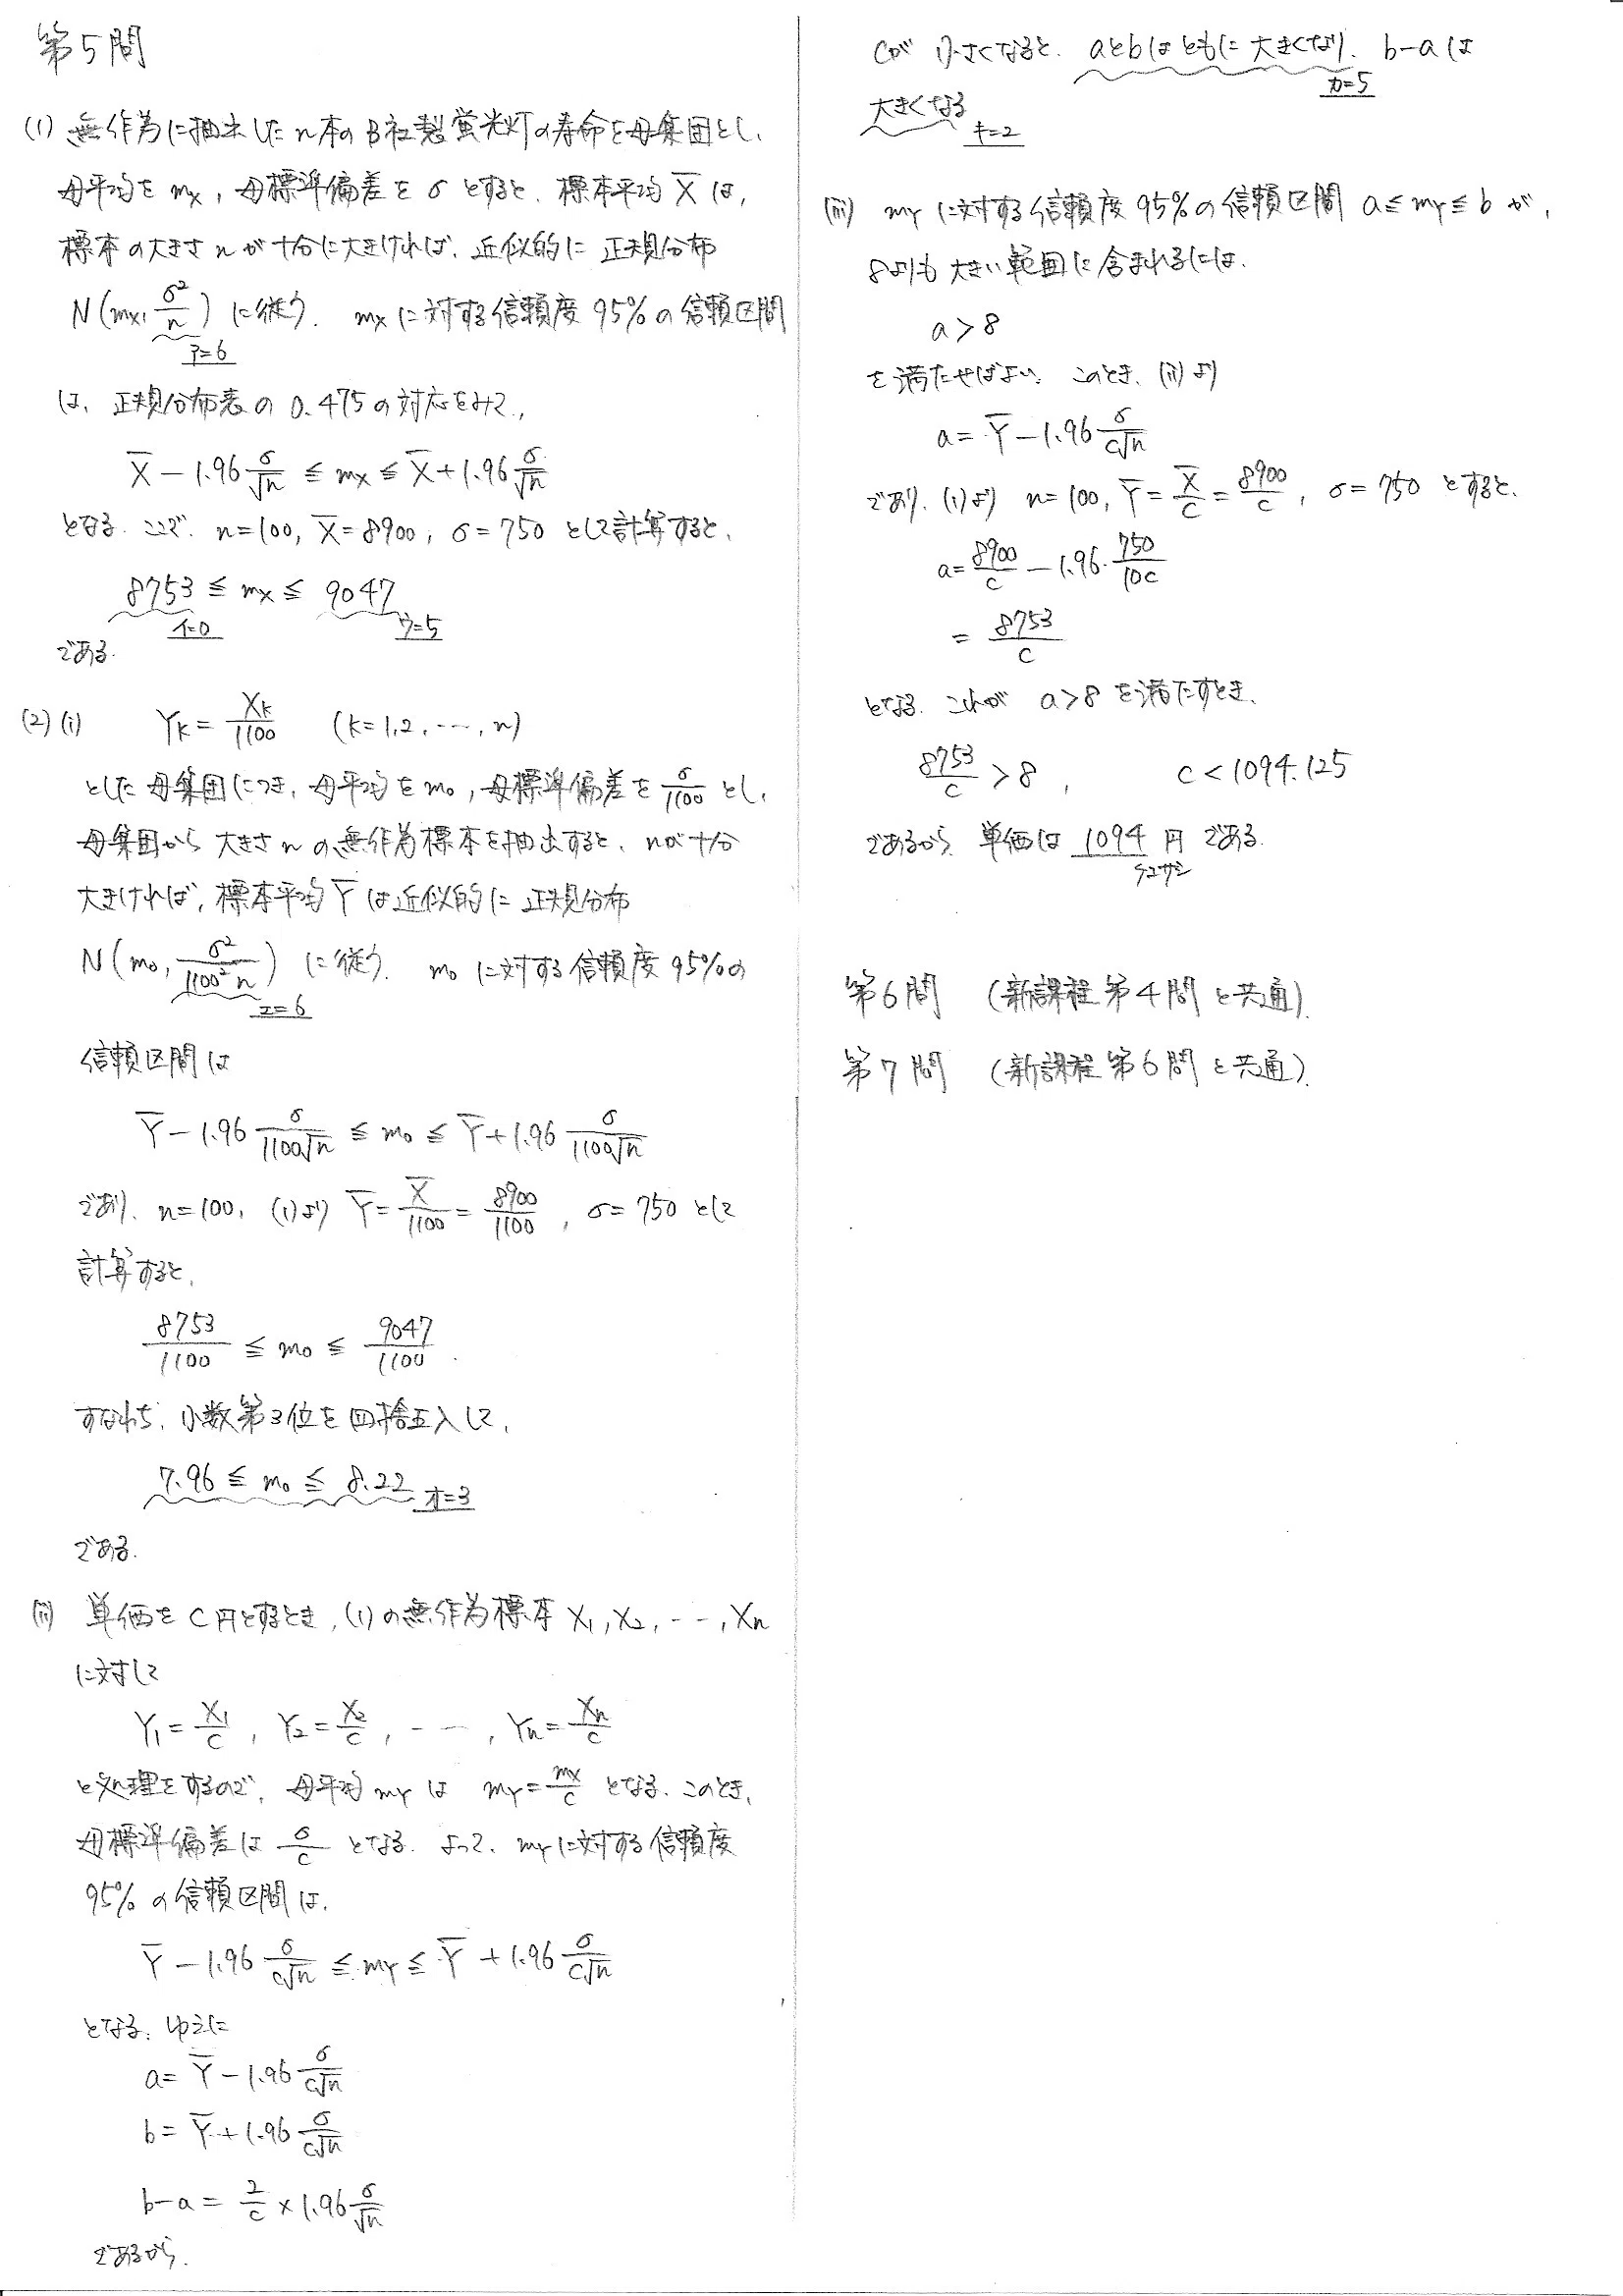 第5問
(1) 無作為に抽出したn本のB社製蛍光灯の寿命を母集団とし、
母平均を mx, 母標準偏差を σ とすると、標本平均 X̄ は、
標本の大きさ n が十分に大きければ、近似的に 正規分布
N(mx, σ²/n) に従う. mx に対する信頼度 95% の信頼区間
ア=6
は、正規分布表の 0.475 の対応をみて、
X̄ − 1.96 σ/√n ≦ mx ≦ X̄ + 1.96 σ/√n
となる. ここで、n=100, X̄=8900, σ=750 として計算すると、
8753 ≦ mx ≦ 9047
イ=0 ウ=5
である.
(2)(i) Yk = Xk/1100 (k=1,2,…,n)
とした母集団につき、母平均を m₀, 母標準偏差を σ/1100 とし、
母集団から 大きさ n の無作為標本を抽出すると、nが十分
大きければ、標本平均 Ȳ は近似的に 正規分布
N(m₀, σ²/1100²n) に従う. m₀ に対する信頼度 95%の
エ=6
信頼区間は
Ȳ − 1.96 σ/1100√n ≦ m₀ ≦ Ȳ + 1.96 σ/1100√n
であり、n=100, (1)より Ȳ = X̄/1100 = 8900/1100, σ=750 として
計算すると、
8753/1100 ≦ m₀ ≦ 9047/1100.
すなわち、小数第3位を四捨五入して、
7.96 ≦ m₀ ≦ 8.22 オ=3
である.
(ii) 単価を c 円とするとき、(1)の無作為標本 X₁, X₂, …, Xn
に対して
Y₁ = X₁/c, Y₂ = X₂/c, …, Yn = Xn/c
と処理をするので、母平均 mY は mY = mx/c となる. このとき、
母標準偏差は σ/c となる. よって、mYに対する信頼度
95% の信頼区間は、
Ȳ − 1.96 σ/c√n ≦ mY ≦ Ȳ + 1.96 σ/c√n
となる. ゆえに
a = Ȳ − 1.96 σ/c√n
b = Ȳ + 1.96 σ/c√n
b−a = 2/c × 1.96 σ/√n
であるから、
cが 小さくなると、aとbはともに大きくなり、b−aは
カ=5
大きくなる
キ=2
(iii) mY に対する信頼度 95% の信頼区間 a ≦ mY ≦ b が、
8よりも 大きい範囲に含まれるには、
a > 8
を満たせばよい. このとき、(ii)より
a = Ȳ − 1.96 σ/c√n
であり、(1)より n=100, Ȳ = X̄/c = 8900/c, σ=750 とすると、
a = 8900/c − 1.96・750/10c
= 8753/c
となる. これが a>8 を満たすとき、
8753/c > 8, c < 1094.125
であるから、単価は 1094 円 である.
クケコサ
第6問 (新課程 第4問 と共通).
第7問 (新課程 第6問 と共通).